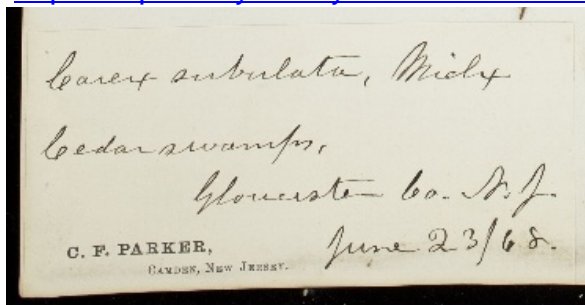 Carex subulata, Michx
Cedar swamps,
Gloucester Co. N. J.
June 23/68.
C. F. PARKER,
CAMDEN, NEW JERSEY.